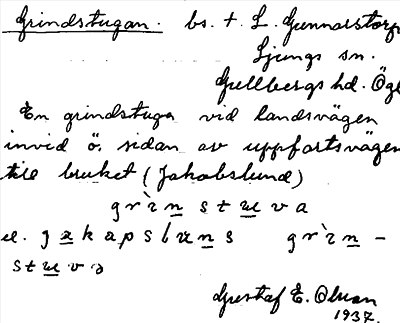 Grindstugan. bs. t. L. Gunnarstorp
Ljungs sn.
Gullbergs hd. Ögl
En grindstuga vid landsvägen
invid ö. sidan av uppfartsvägen
till bruket (Jakobslund)
gr`ın stuva
el. jakapslun s gr`ın -
stuva
Gustaf E. Olson
1937.